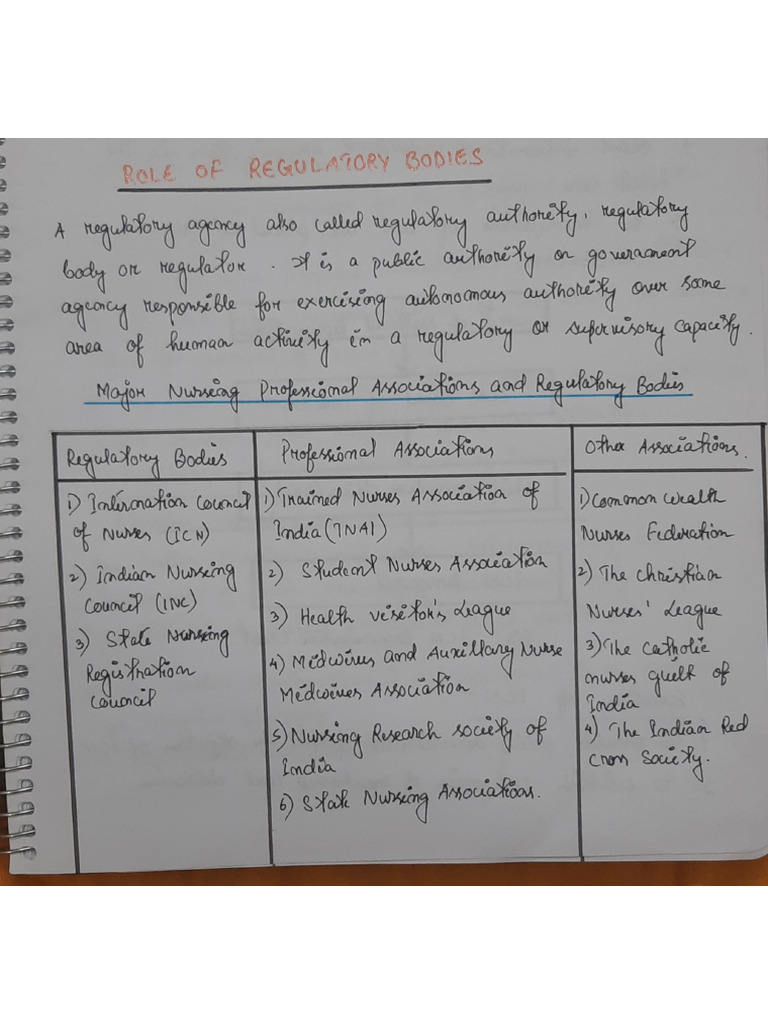 ROLE OF REGULATORY BODIES
A regulatory agency also called regulatory authority, regulatory
body or regulator. It is a public authority or government
agency responsible for exercising autonomous authority over some
area of human activity in a regulatory or supervisory capacity.
Major Nursing Professional Associations and Regulatory Bodies
Regulatory Bodies
1) Internation Council
of Nurses (ICN)
2) Indian Nursing
Council (INC)
3) State Nursing
Registration
Council
Professional Associations
1) Trained Nurses Association of
India (TNAI)
2) Student Nurses Association
3) Health visitor's League
4) Midwives and Auxillary Nurse
Midwives Association
5) Nursing Research society of
India
6) State Nursing Associations.
Other Associations.
1) Common wealth
Nurses Federation
2) The Christian
Nurses' League
3) The Catholic
nurses guilt of
India
4) The Indian Red
Cross Society.